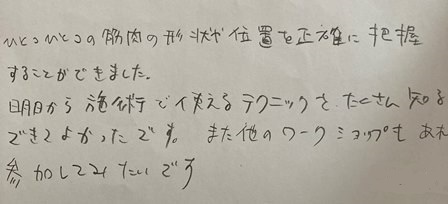 ひとつひとつの筋肉の形状や位置を正確に把握
することができました。
明日から施術で使えるテクニックを、たくさん知る
できてよかったです。また他のワークショップも あれ
参加してみたいです